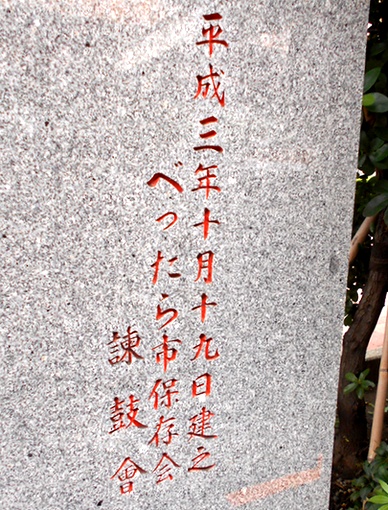 平成三年十月十九日建之
べったら市保存会
諫鼓會